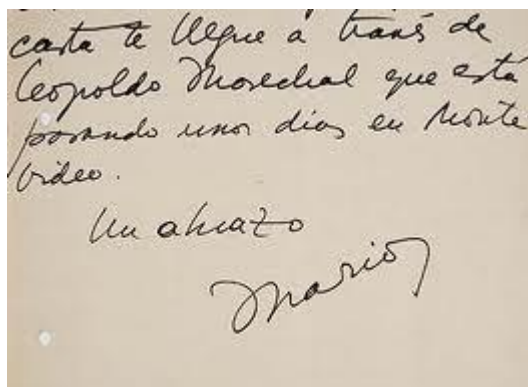 carta te llegue a través de
Leopoldo Marechal que está
pasando unos días en Monte
video.
Un abrazo
Mario